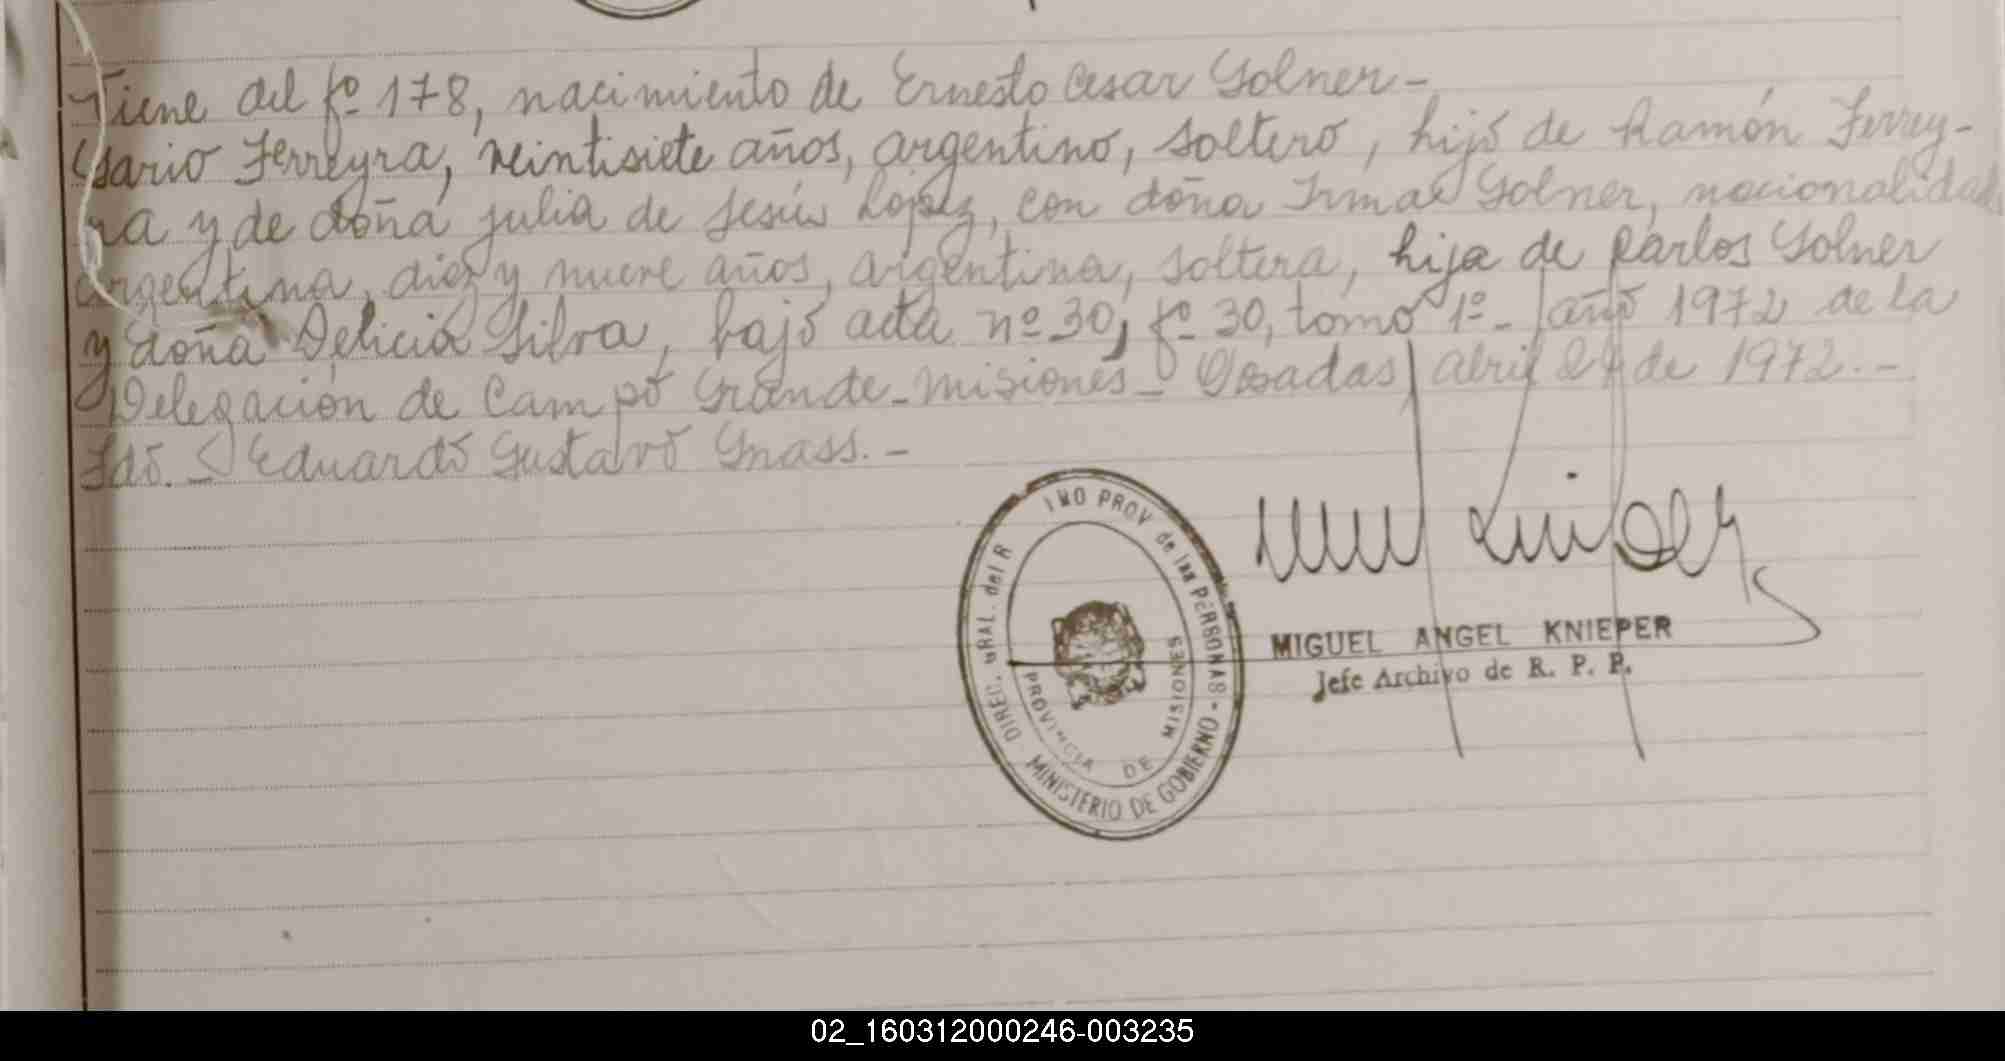 Viene del fº 178, nacimiento de Ernesto Cesar Golner-
Dario Ferreyra, veintisiete años, argentino, soltero, hijo de Ramón Ferrey-
ra y de doña Julia de Jesús López, con doña Irmae Golner, nacionalidad
argentina, diez y nueve años, argentina, soltera, hija de Carlos Golner
y doña Delicia Silva, bajo acta nº 30, fº 30, tomo 1º- año 1972 de la
Delegación de Campo Grande-Misiones- Posadas abril 27 de 1972.-
Fdo.- Eduardo Gustavo Gnass.-
DIREC. GRAL. del R PROV de las PERSONAS - MINISTERIO DE GOBIERNO
PROVINCIA DE MISIONES
MIGUEL ANGEL KNIEPER
Jefe Archivo de R. P. P.
02_160312000246-003235